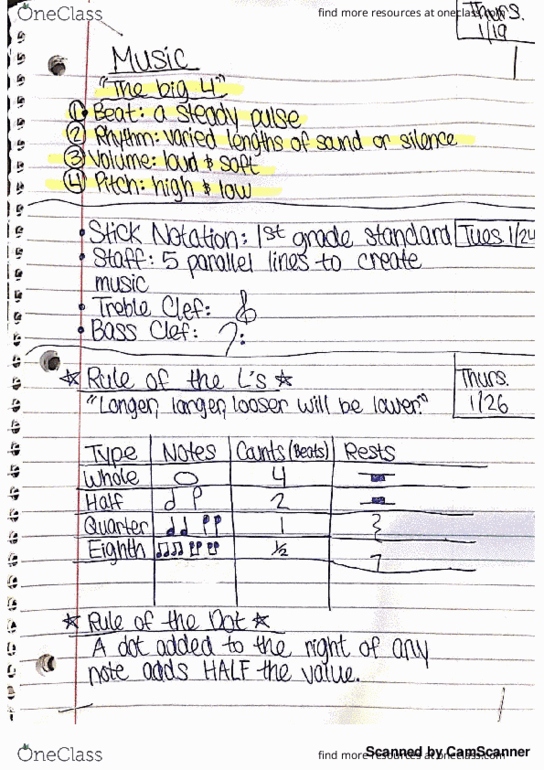 OneClass
find more resources at oneclass.com
Thurs.
1/19
Music
"The big 4"
① Beat: a steady pulse
② Rhythm: varied lengths of sound or silence
③ Volume: loud & soft
④ Pitch: high & low
• Stick Notation: 1st grade standard
Tues 1/24
• Staff: 5 parallel lines to create
music
• Treble Clef: 𝄞
• Bass Clef: 𝄢
☆ Rule of the L's ☆
Thurs.
1/26
"Longer, larger, looser will be lower."
Type Notes Counts (Beats) Rests
Whole 4
Half 2
Quarter 1
Eighth 1/2
☆ Rule of the Dot ☆
A dot added to the right of any
note adds HALF the value.
OneClass
find more resources at oneclass.com
Scanned by CamScanner